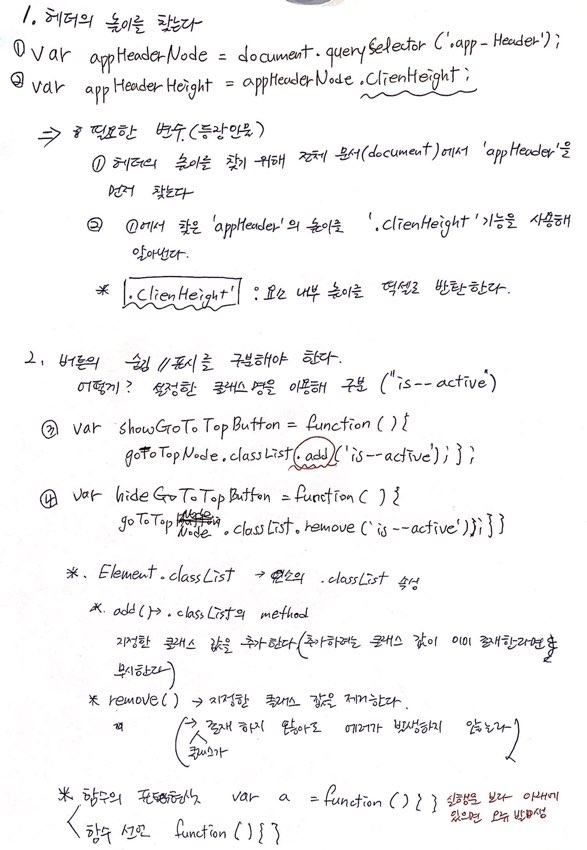 1. 헤더의 높이를 찾는다
① var appHeaderNode = document.querySelector('.app-Header');
② var appHeaderHeight = appHeaderNode.ClienHeight;
⇒ 필요한 변수(등장인물)
① 헤더의 높이를 찾기 위해 전체 문서(document)에서 'appHeader'을
먼저 찾는다
② ①에서 찾은 'appHeader'의 높이를 '.clienHeight'기능을 사용해
알아낸다.
* .ClienHeight' : 요소 내부 높이를 픽셀로 반환한다.
2. 버튼의 숨김//표시를 구분해야 한다.
어떻게? 설정한 클래스명을 이용해 구분 ("is--active")
③ var showGoToTopButton = function(){
goToTopNode.classList.add('is--active'); };
④ var hideGoToTopButton = function( ){
goToTop Node.classList.remove('is--active')};}}
*. Element.classList → 요소의 .classList 속성
*. add()→ .classList의 method
지정한 클래스 값을 추가한다(추가하려는 클래스 값이 이미 존재한다면
무시한다)
* remove() → 지정한 클래스 값을 제거한다.
(→ 존재 하지 않아도 에러가 발생하지 않는다)
클래스가
* 함수의 var a = function(){ } 실행문 보다 아래에
있으면 오류 발생
함수 선언 function(){ }